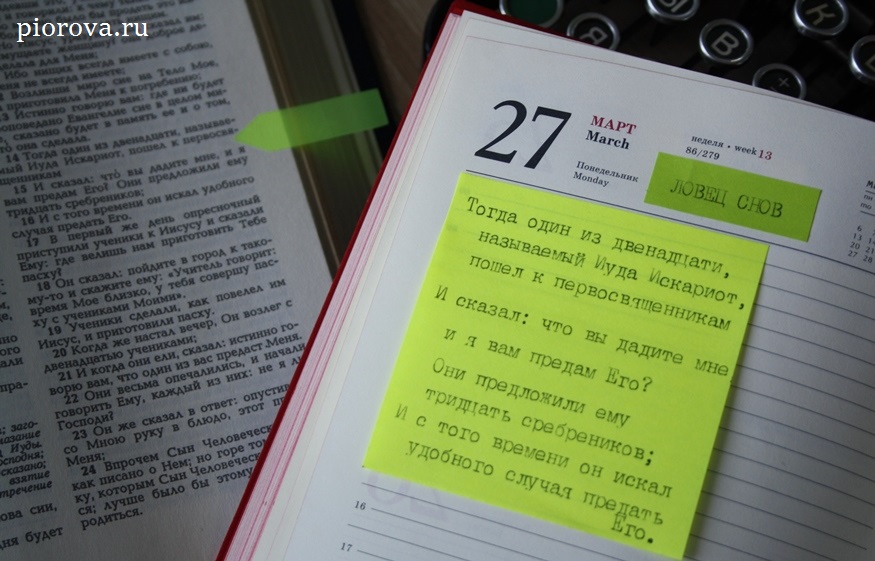 piorova.ru
Иисус, увидев
Меня;
11 Ибо нищих всегда имеете с собою,
меня не всегда имеете;
12 Возливши миро сие на Тело Мое,
приготовила Меня к погребению;
13 Истинно говорю вам: где ни будет
проповедано Евангелие сие в целом ми-
сказано будет в память ее и о том,
она сделала.
14 Тогда один из двенадцати, называе-
мый Иуда Искариот, пошел к первосвя-
щенникам
15 И сказал: что вы дадите мне, и я
вам предам Его? Они предложили ему
тридцать сребреников;
6 И с того времени он искал удобного
случая предать Его.
17 В первый же день опресночный
приступили ученики к Иисусу и сказали
Ему: где велишь нам приготовить Тебе
пасху?
18 Он сказал: пойдите в город к тако-
му-то и скажите ему: «Учитель говорит:
время Мое близко, у тебя совершу пас-
ху с учениками Моими».
19 Ученики сделали, как повелел им
Иисус, и приготовили пасху.
20 Когда же настал вечер, Он возлег с
двенадцатью учениками;
21 И когда они ели, сказал: истинно го-
ворю вам, что один из вас предаст Меня.
22 Они весьма опечалились, и начали
говорить Ему, каждый из них: не я ли,
Господи?
23 Он же сказал в ответ: опустив
со Мною руку в блюдо, этот пр
Меня;
24 Впрочем Сын Человечески
как писано о Нем; но горе том
ку, которым Сын Человеческ
ся; лучше было бы этому
родиться.
27
МАРТ
March
Понедельник
Monday
неделя • week 13
86/279
ЛОВЕЦ СНОВ
Тогда один из двенадцати,
называемый Иуда Искариот,
пошел к первосвященникам
И сказал: что вы дадите мне
и я вам предам Его?
Они предложили ему
тридцать сребреников;
И с того времени он искал
удобного случая предать
Его.
16
17
6
13
20
27
В
К